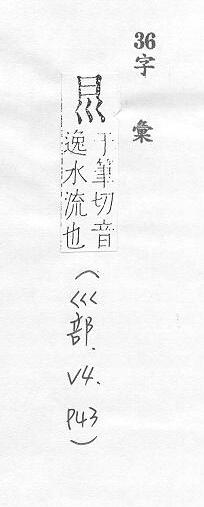 36
字彙
于筆切音
逸水流也
(巛部.V4.P43)